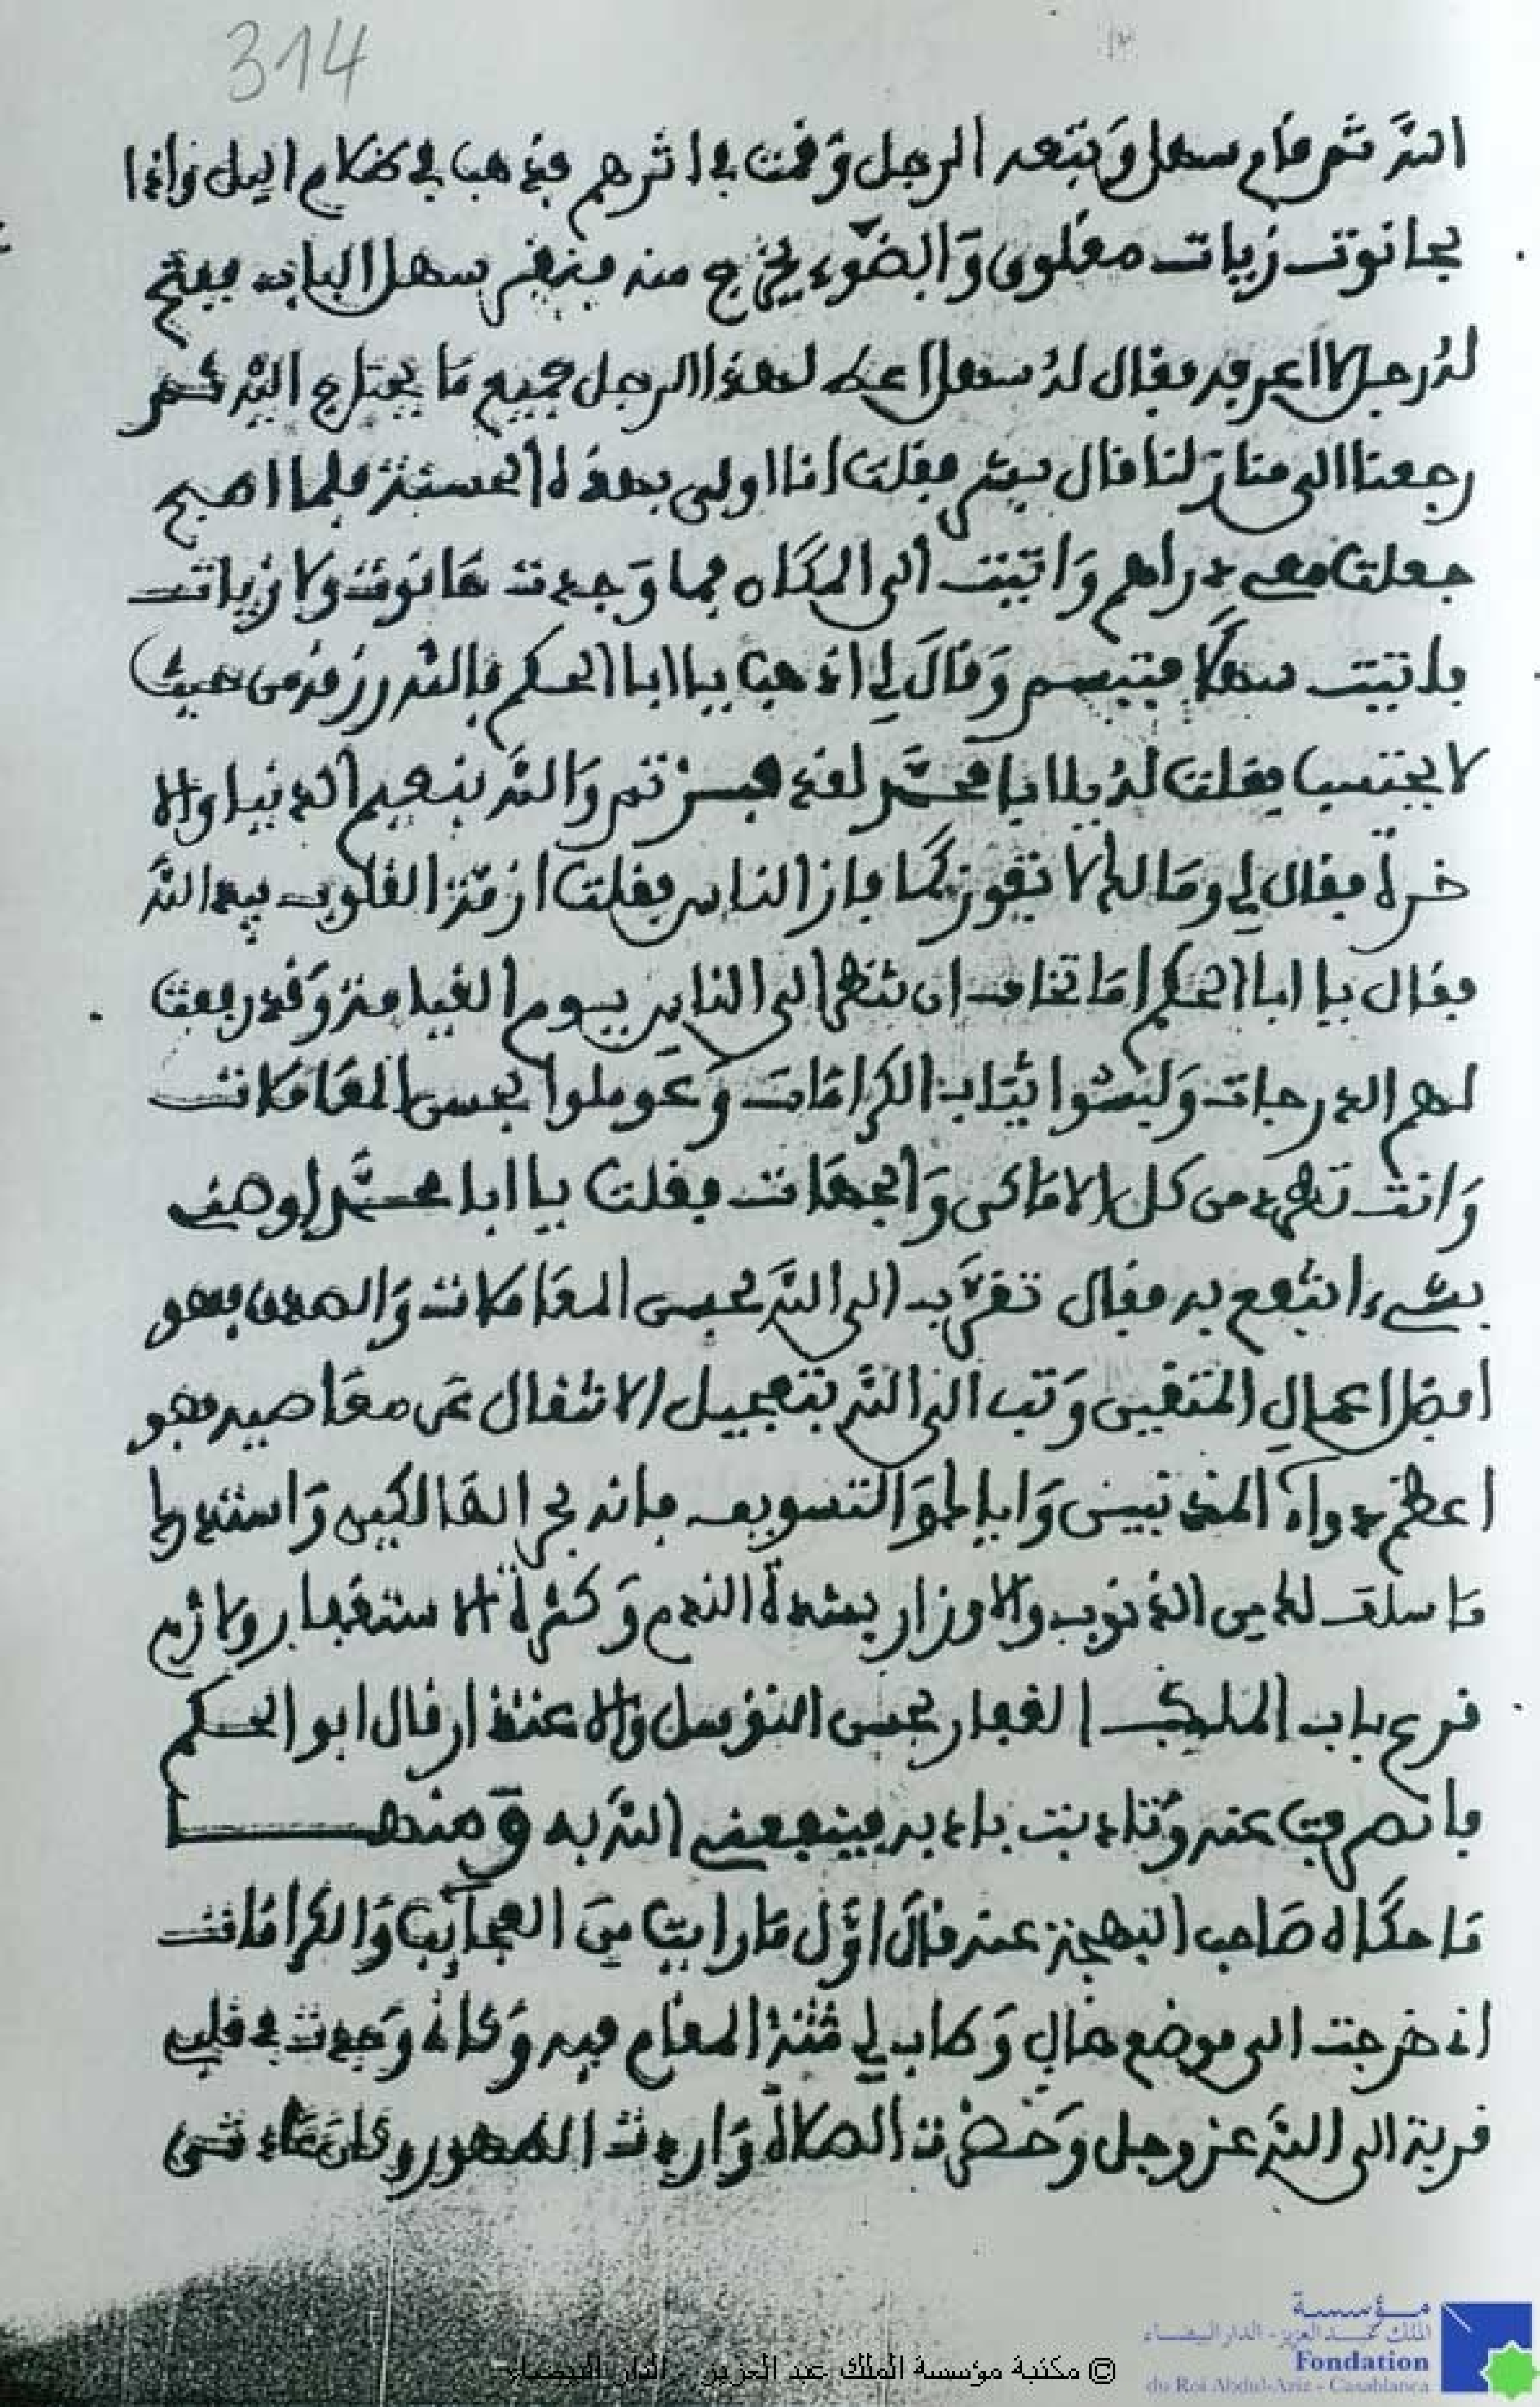 314
الله ثم قام سهل وتبعه الرجل وقمت في اثرهم فذهب في ظلام اليل واذا
بحانوت زيات مغلوق والضوء يخرج منه فنقر سهل الباب ففتح
له رجل لا اعرفه فقال له سهل اعط لهذا الرجل جميع ما يحتاج اليه ثم
رجعنا الى منازلنا قال بشر فقلت انا اولى بهذه الحسنة فلما اصبح
جعلت معي دراهم واتيت الى المكان فما وجدت حانوت ولا زيات
فاتيت سهلا فتبسم وقال لي اذهب يا ابا الحكم فالله رزقه من حيث
لا يحتسب فقلت له يا ابا محمد لقد فزتم والله بنعيم الدنيا والا
خرة فقال لي وما لك لا تفوز كما فاز الناس فقلت ازمة القلوب بيد الله
فقال يا ابا الحكم اما تخاف ان تنظر الى الناس يوم القيامة وقد رفعت
لهم الدرجات ولبسوا ثياب الكرامات وعوملوا بحسن المعاملات
وانت تطرد من كل الاماكن والجهات فقلت يا ابا محمد اوصني
بشيء انتفع به فقال تقرب الى الله بحسن المعاملات والصدق فهو
افضل اعمال المتقين وتب الى الله بتعجيل الانتقال عن معاصيه فهو
اعظم دواء المذنبين واياك والتسويف فانه بحر الهالكين واستدرك
ما سلف لك من الذنوب والاوزار بشدة الندم وكثرة الاستغفار ولازم
قرع باب الملك الغفار بحسن التوسل والاعتذار قال ابو الحكم
فانصرفت عنه وتادبت بادبه فينفعني الله به ومنها
ما حكاه صاحب البهجة عنه قال اول ما رايت من العجايب والكرامات
اني خرجت الى موضع خال وطاب لي المقام فيه وكاني وجدت في قلبي
قربة الى الله عز وجل وحضرت الصلاة واردت الطهور وكانت عادتي
مؤسسة
الملك عبد العزيز - الدار البيضاء
Fondation
du Roi Abdul-Aziz - Casablanca
© مكتبة مؤسسة الملك عبد العزيز - الدار البيضاء